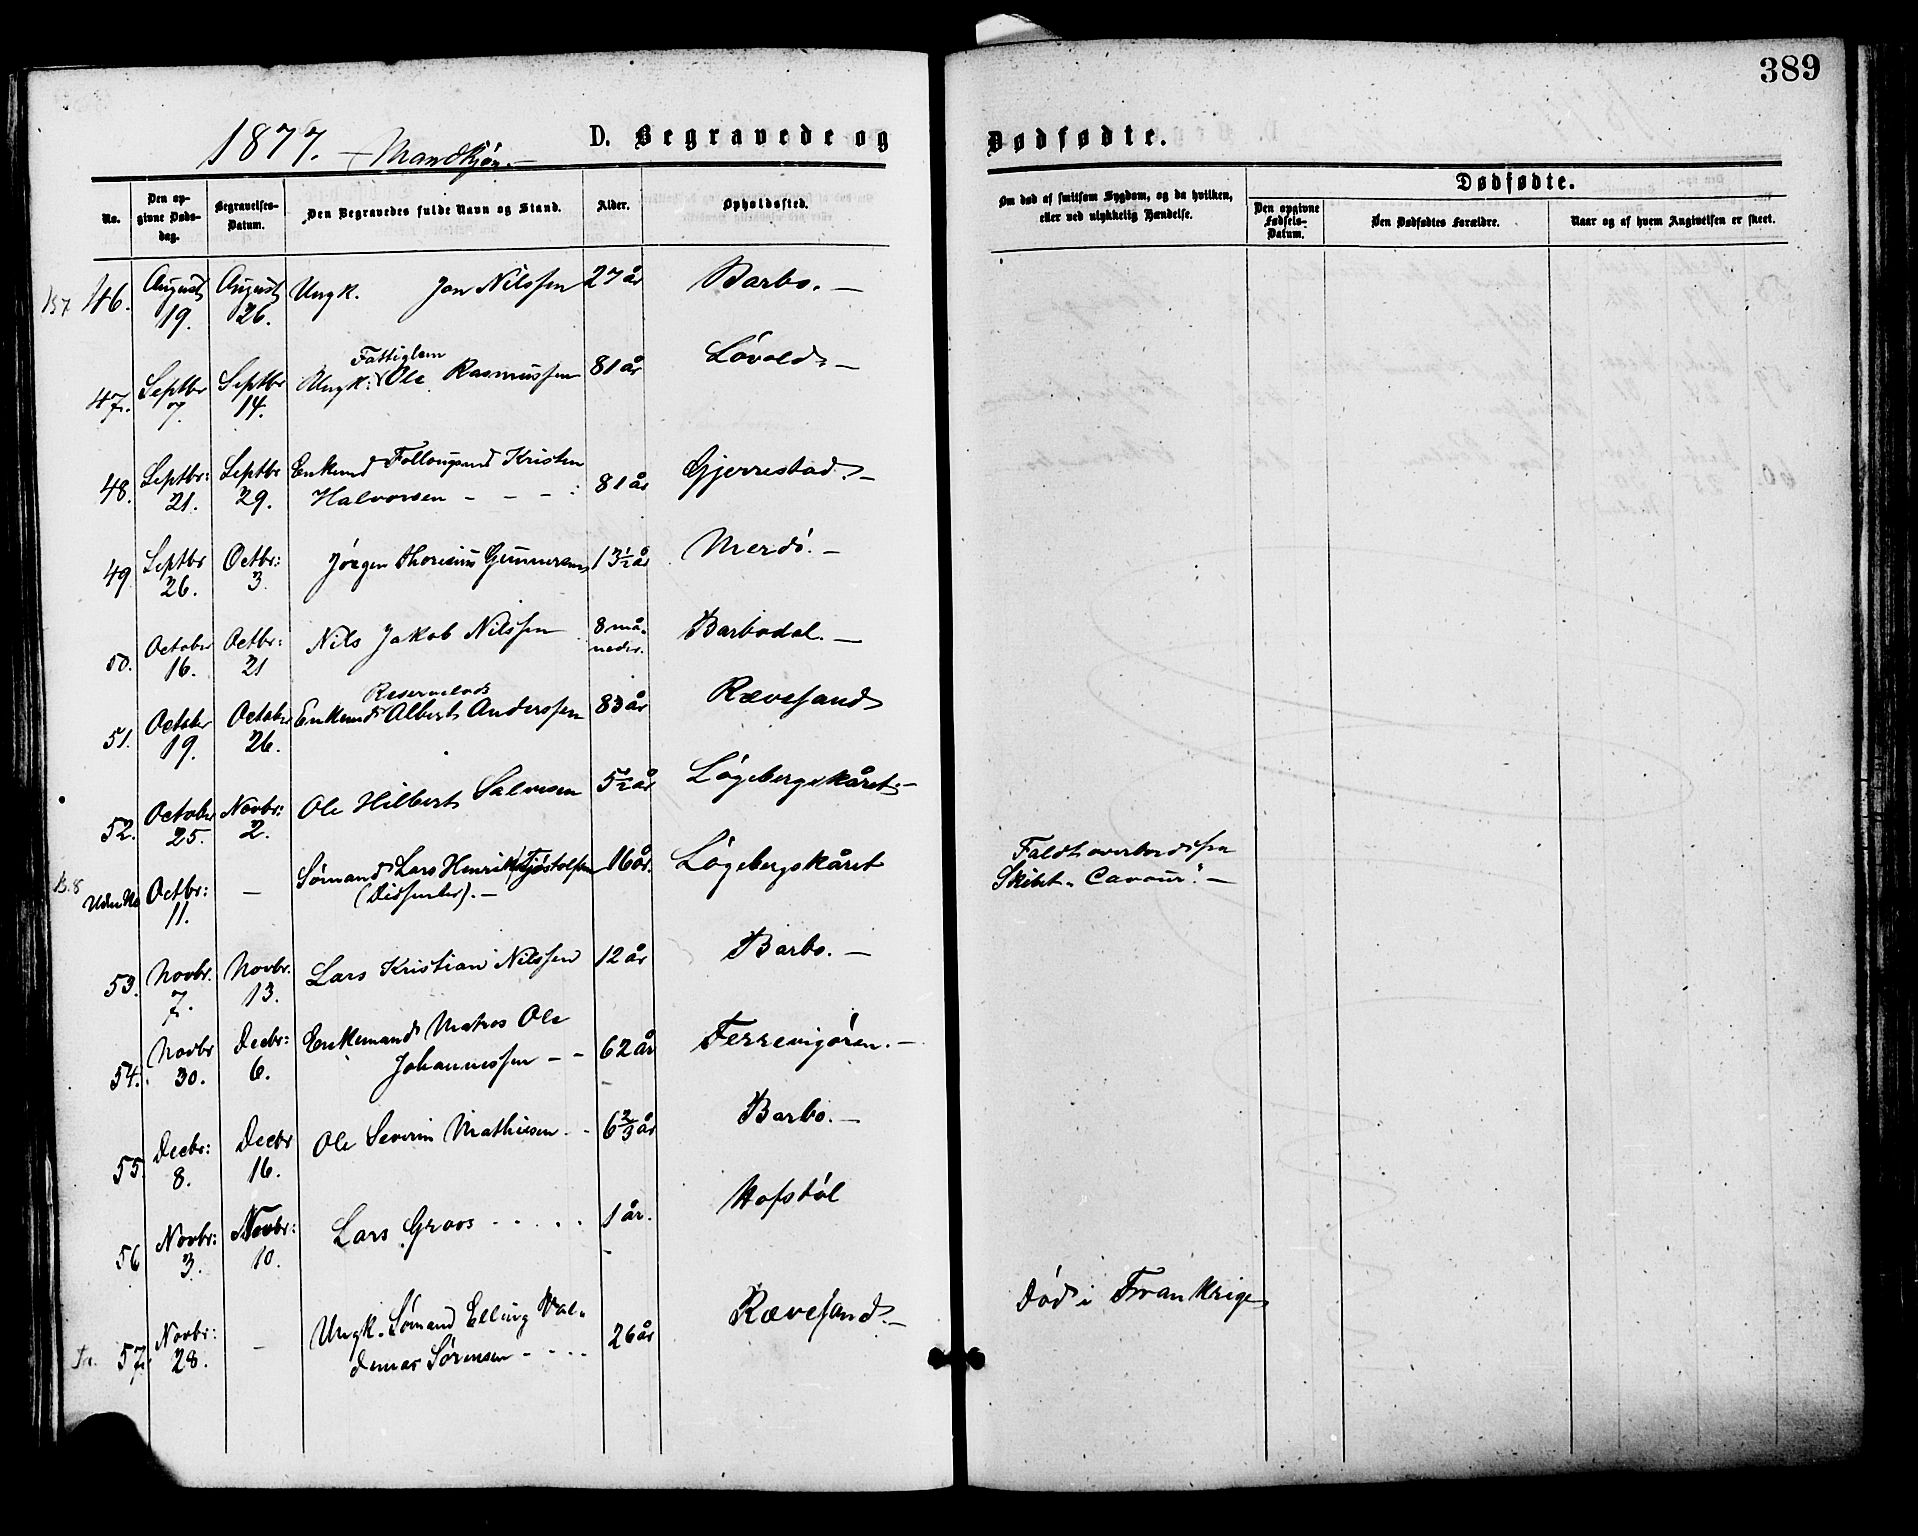 389
1877. — Mandkjøn. —
D. Begravede og Dødfødte.
No. | Den opgivne Døds-dag. | Begravelses-Datum. | Den Begravedes fulde Navn og Stand. | Alder. | Opholdssted. | Om død af smitsom Sygdom, og da hvilken, eller ved ulykkelig Hændelse. | Dødfødte. | Den opgivne Fødsels-Datum. | Den Dødfødtes Forældre. | Naar og af hvem Angivelsen er skeet.
46. | August 19. | August 26. | Ungk. Jon Nilssen | 27 år | Barbo. —
47. | Septbr 7. | Septbr 14. | Ungk: Fattiglem Ole Rasmussen | 81 år | Løvold. —
48. | Septbr: 21. | Septbr 29. | Enkemd Follougsmd Kristen Halvorsen - - - | 81 år | Gjerrestad. —
49. | Septbr 26. | Octbr: 3. | Jørgen Gunnersen | 13½ år | Merdö. —
50. | October 16. | Octbr: 21 | Nils Jakob Nilssen | 8 må-neder. | Barbodal. —
51. | October 19. | October 26. | Enkemd Reservelods Albert Anderssen | 83 år | Rævesand
52. | October 25. | Novbr: 2. | Ole Hilbert Salvesen | 5½ år | Løgebergskåret. —
B. 8 Uden No | Octbr: 11. | — | Sømand Lars Henrik Tjøstolfsen (Dissenter). — | 16 år. | Løgebergskåret | Faldt overbord fra Skibet „Cavour". —
53. | Novbr. 7. | Novbr. 13. | Lars Kristian Nilssen | 12 år | Barbo. —
54. | Novbr 30. | Decbr: 6. | Enkemand Matros Ole Johannessen - - | 62 år | Ferrevigören. —
55. | Decbr: 8. | Decbr 16. | Ole Severin Mathiesen - - | 6⅔ år | Barbo. —
56 | Novbr: 3. | Novbr: 10. | Lars Groos - - - - - | 1 år. | Hofstöl
57. | Novbr: 28. | — | Ungk. Sømand Elling Val-demar Sørensen - - - - | 26 år | Rævesand. — | Död i Frankrige